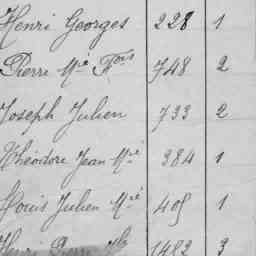 Henri Georges 228 1
Pierre Mie Fois 748 2
Joseph Julien 733 2
Théodore Jean Mie 384 1
Louis Julien Mie 405 1
Henri Pierre 1482 3